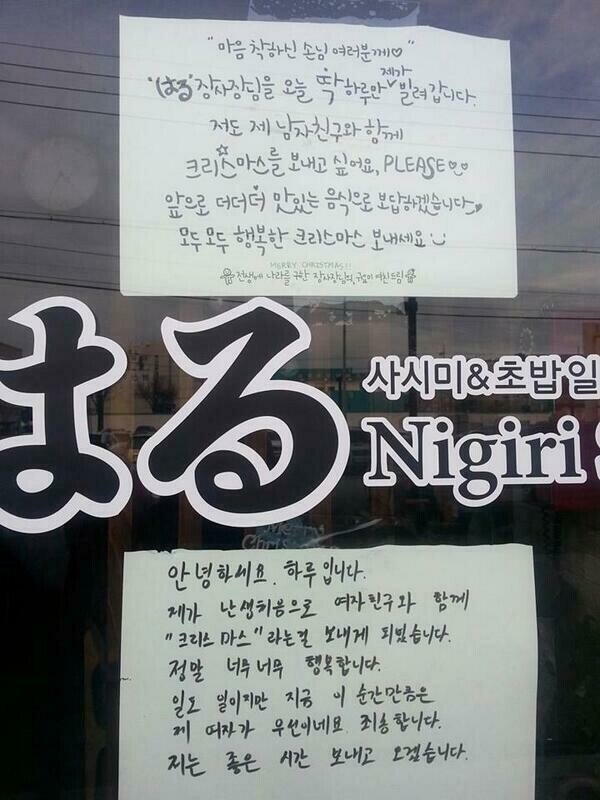 "마음 착하신 손님 여러분께♡"
'はる'장사장님을 오늘 딱 하루만 제가 빌려갑니다.
저도 제 남자친구와 함께
크리스마스를 보내고 싶어요, PLEASE
앞으로 더더더 맛있는 음식으로 보답하겠습니다
모두모두 행복한 크리스마스 보내세요
MERRY CHRISTMAS!!
전생에 나라를 구한 장사장님의 여친드림
はる
사시미&초밥일
Nigiri
Merry
Chris
안녕하세요. 하루입니다.
제가 난생처음으로 여자친구와 함께
"크리스마스"라는걸 보내게 되었습니다.
정말 너무너무 행복합니다.
일도 일이지만 지금 이 순간만큼은
제 여자가 우선이네요 죄송합니다.
저는 좋은 시간 보내고 오겠습니다.